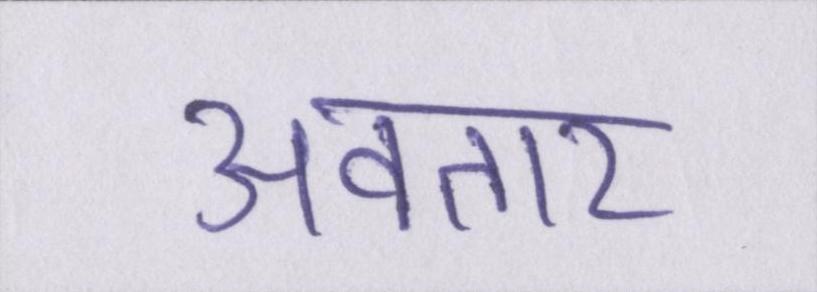 अवतार